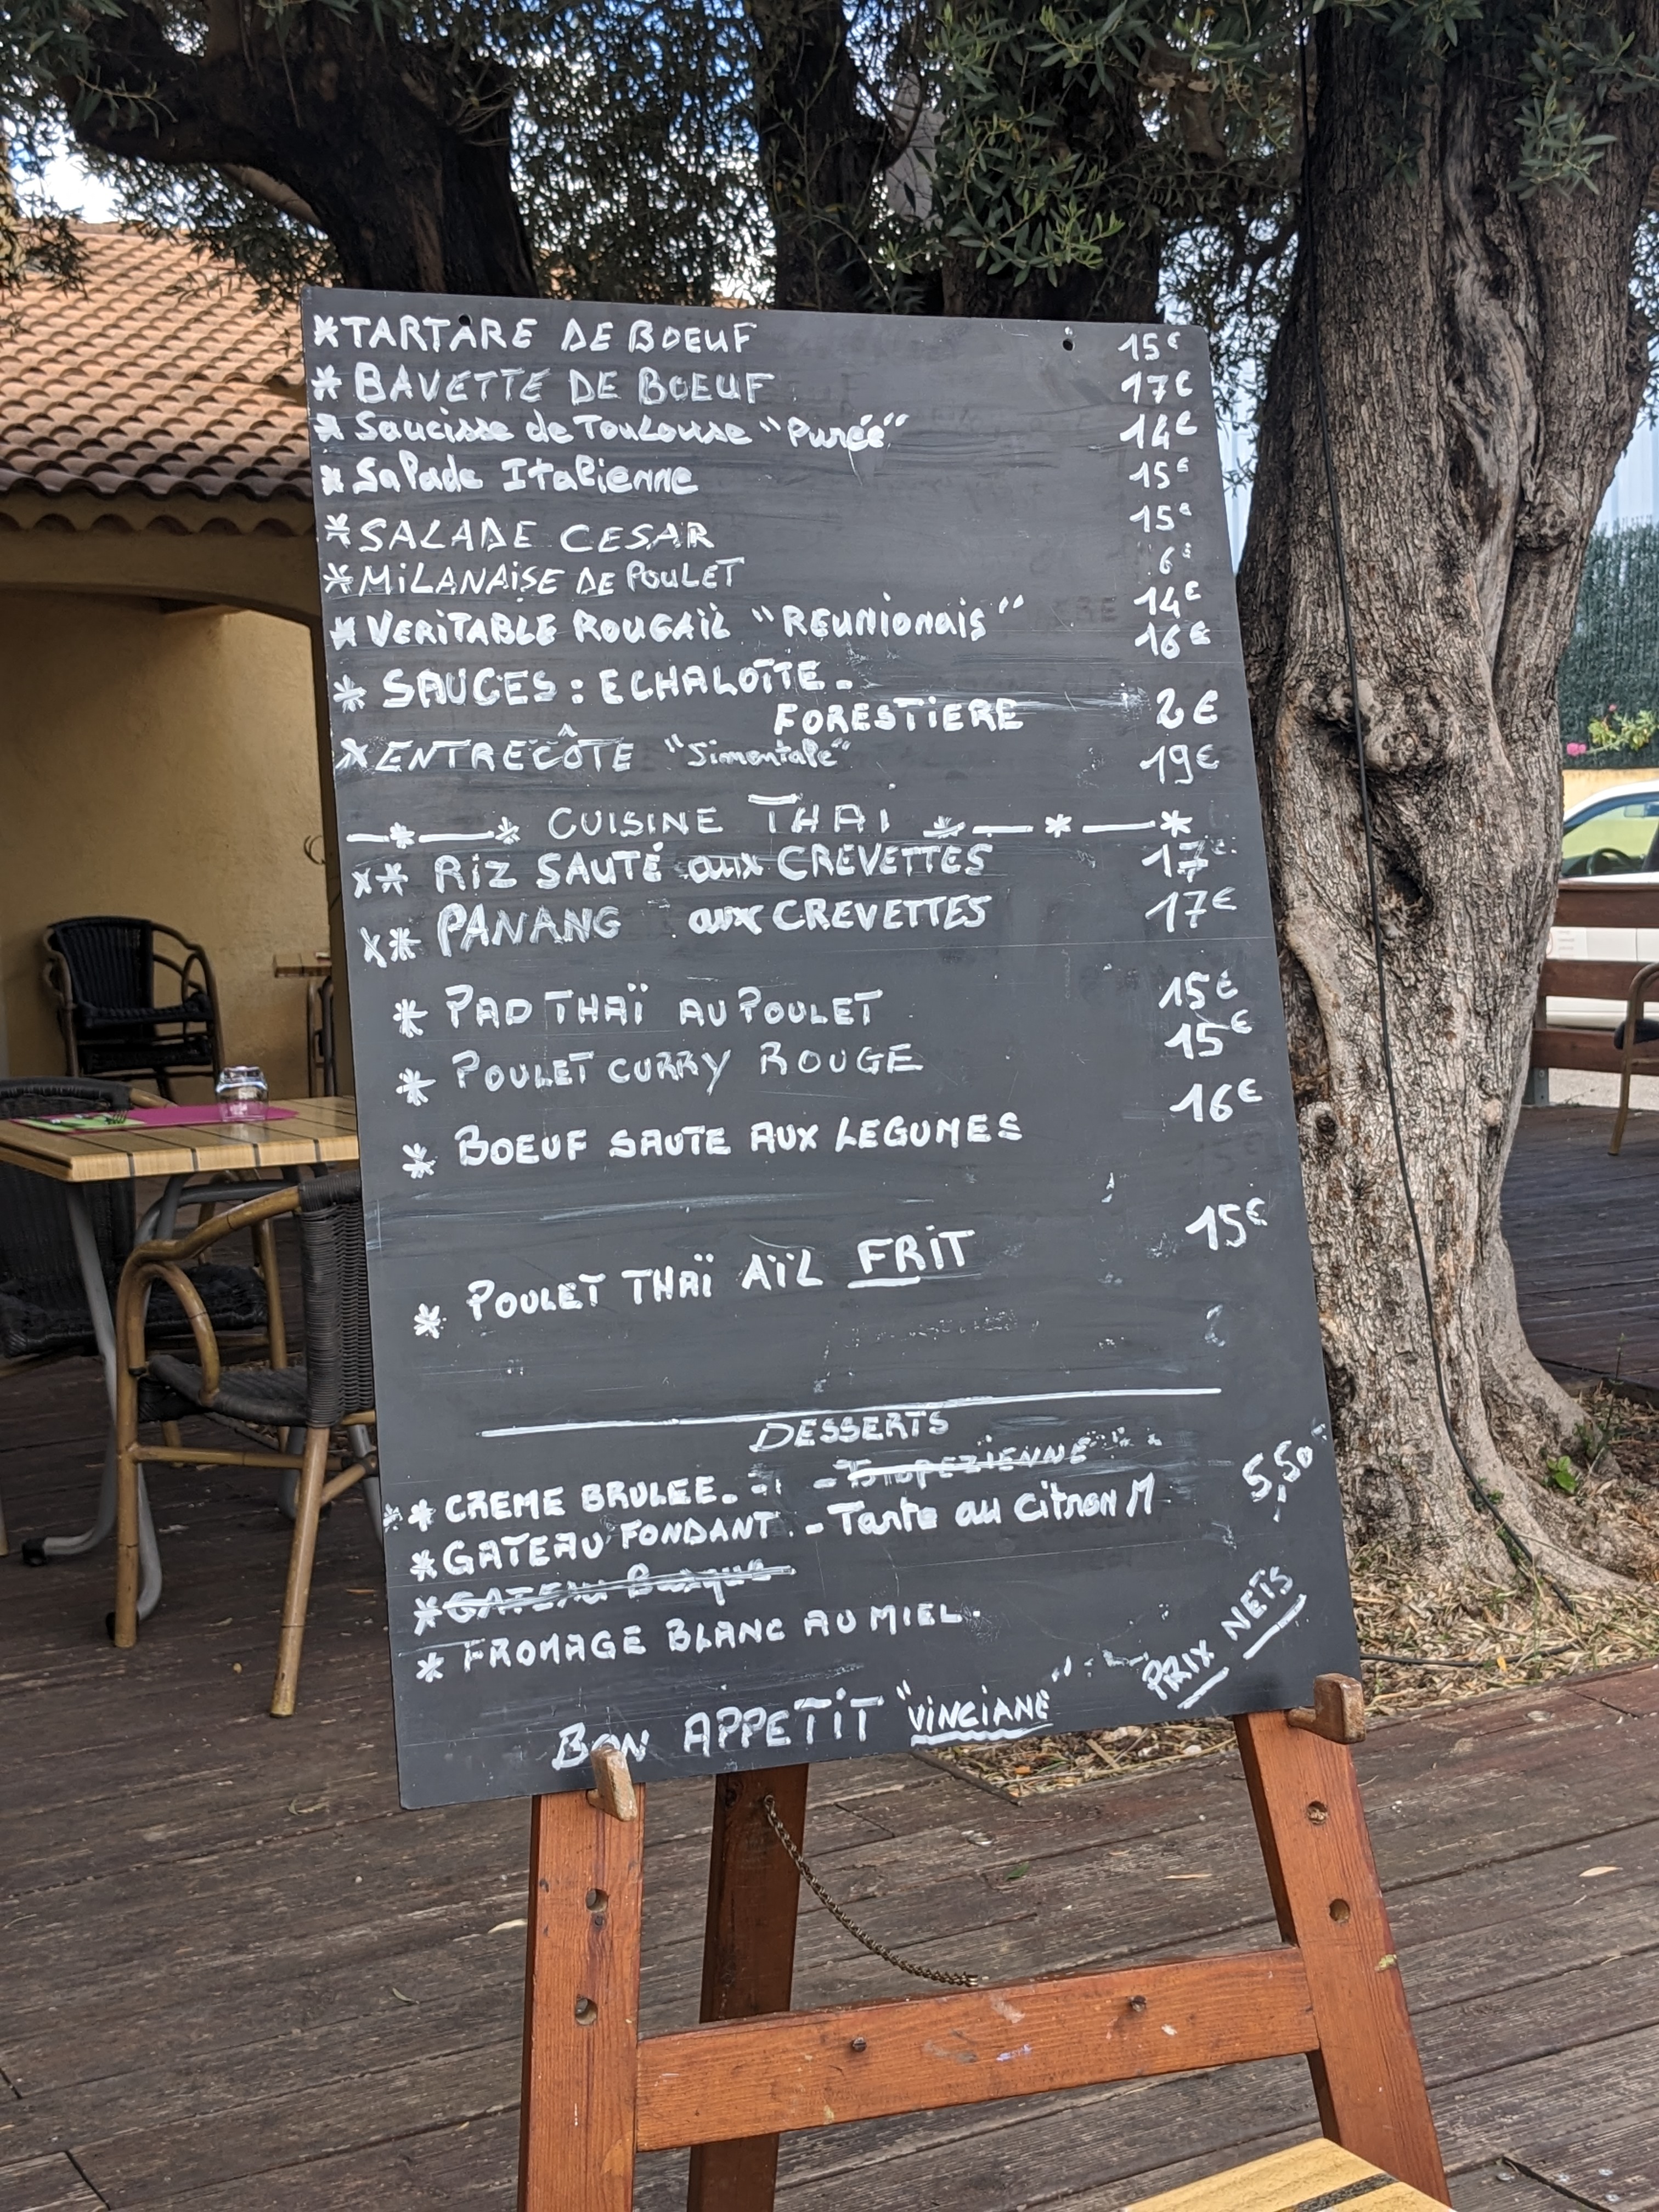 *TARTARE DE BOEUF 15€
*BAVETTE DE BOEUF 17€
*Saucisse de Toulouse "Purée" 14€
*Salade Italienne 15€
*SALADE CESAR 15€
6
*MILANAISE DE POULET 14€
*VERITABLE ROUGAIL "REUNIONAIS" 16€
*SAUCES: ECHALOTTE -
FORESTIERE 2€
*ENTRECÔTE "Simentale" 19€
—*—* CUISINE THAI *—*—*
** RIZ SAUTÉ aux CREVETTES 17€
** PANANG aux CREVETTES 17€
* PAD THAÏ AU POULET 15€
* POULET CURRY ROUGE 15€
* BOEUF SAUTE AUX LEGUMES 16€
* POULET THAÏ AÏL FRIT 15€
DESSERTS
** CREME BRULEE. - TROPEZÏENNE
*GATEAU FONDANT. - Tarte au Citron M 5,50€
*GATEAU Basque
* FROMAGE BLANC AU MIEL.
PRIX NETS
BON APPETIT "VINCIANE"